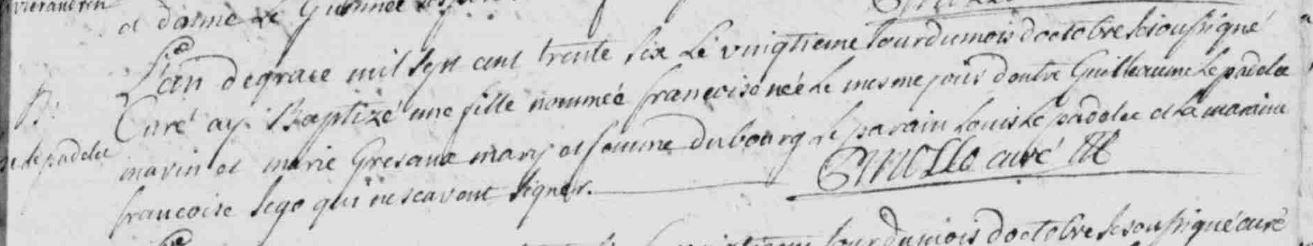 et dame Le
L'an degrace mil sept cent trente six Le vingtieme Jour du mois d'octobre Je sousigné
B:
Curé ay Baptizé une fille nommée francoise née Le mesme jour d'entre Guilleaume Le padelec
le padelec
marin et marie Gresanx mary et femme du bourg Le parain Louis Le padelec et La maraine
francoise Sego qui ne scavent signer. curé
Jour du mois d'octobre Je sousigné curé